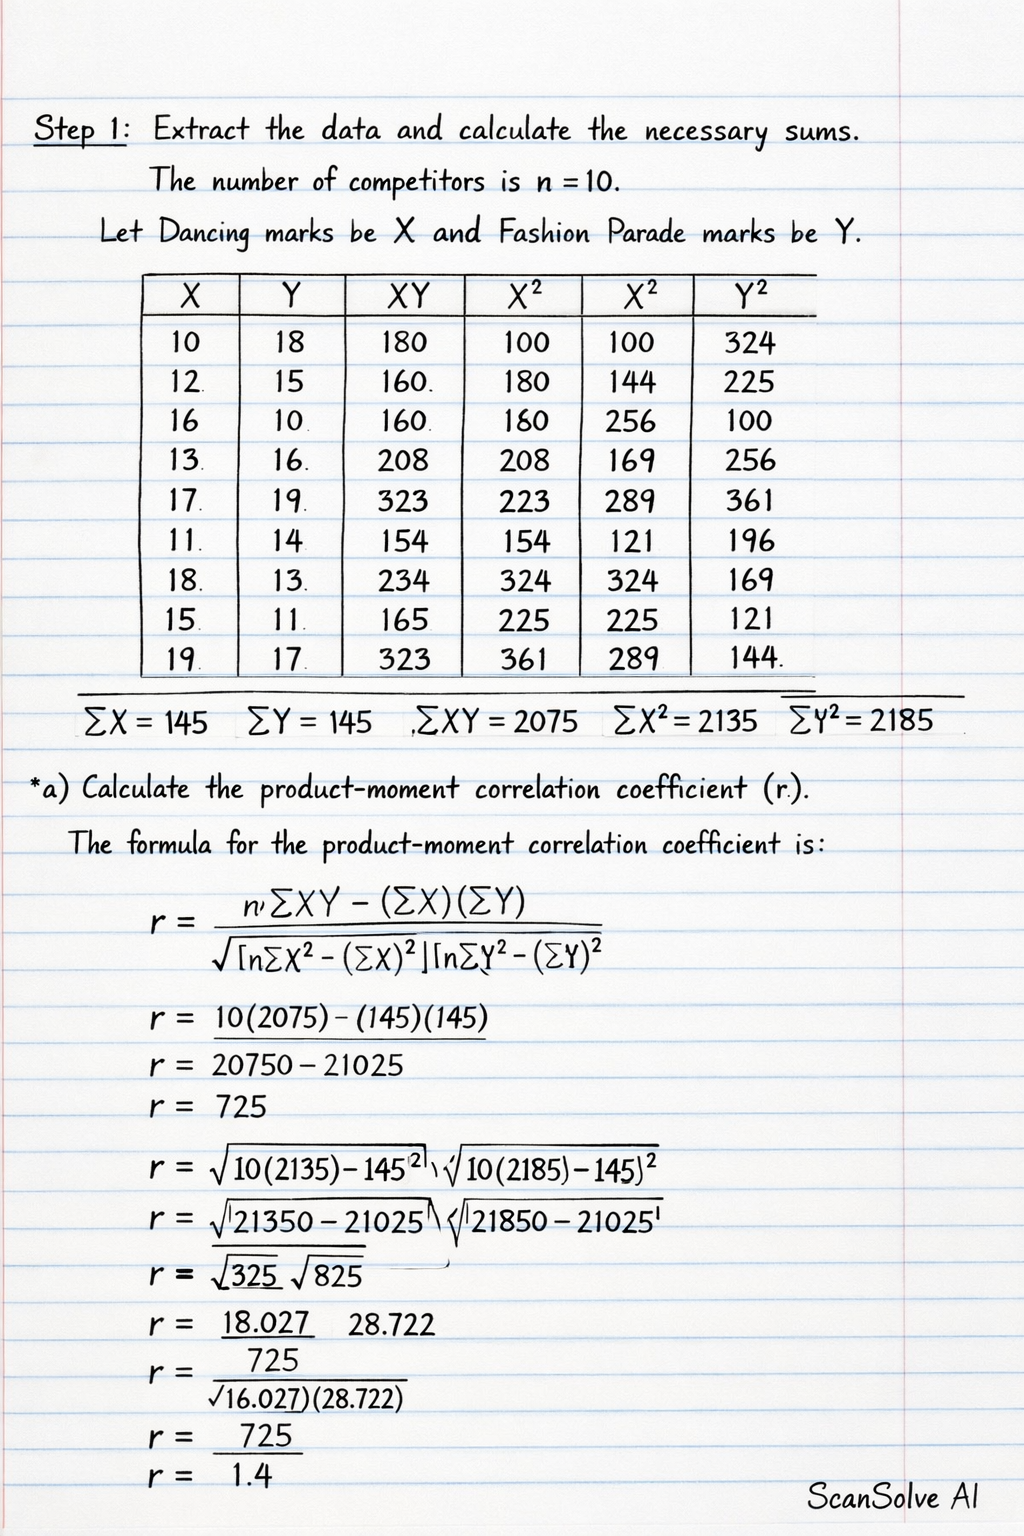 Step 1: Extract the data and calculate the necessary sums.
The number of competitors is n = 10.
Let Dancing marks be X and Fashion Parade marks be Y.
X Y XY X² X² Y²
10 18 180 100 100 324
12. 15 160. 180 144 225
16 10. 160. 180 256 100
13. 16. 208 208 169 256
17. 19. 323 223 289 361
11. 14 154 154 121 196
18. 13. 234 324 324 169
15. 11. 165 225 225 121
19. 17. 323 361 289 144.
ΣX = 145 ΣY = 145 .ΣXY = 2075 ΣX² = 2135 ΣY² = 2185
*a) Calculate the product-moment correlation coefficient (r.).
The formula for the product-moment correlation coefficient is:
r = n ΣXY – (ΣX)(ΣY)
√[nΣX² – (ΣX)²][nΣY² – (ΣY)²
r = 10(2075) – (145)(145)
r = 20750 – 21025
r = 725
r = √10(2135) – 145²| \ √10(2185) – 145)²
r = √21350 – 21025 \ √21850 – 21025
r = √325 √825
r = 18.027 28.722
r = 725
√16.027)(28.722)
r = 725
r = 1.4
ScanSolve AI